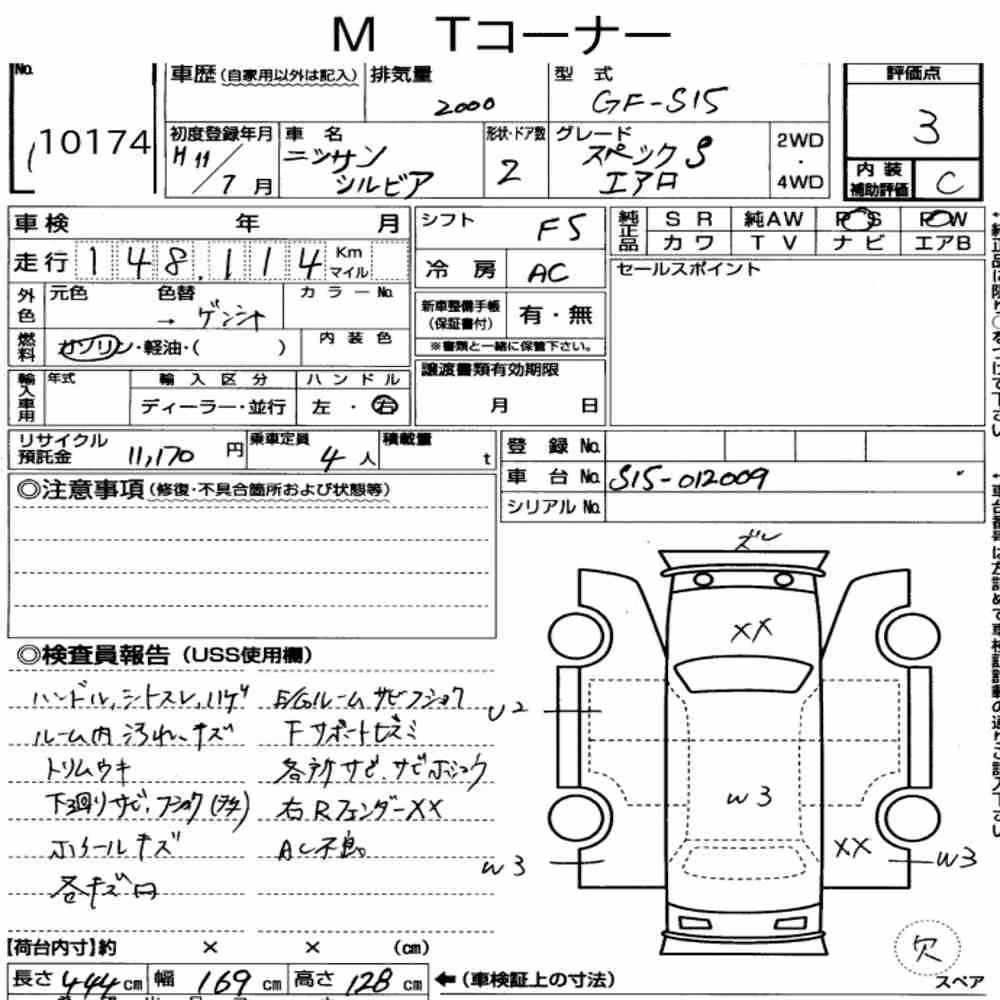 M Tコーナー
No.
10174
車歴(自家用以外は記入)
排気量
2000
型式
GF-S15
評価点
3
初度登録年月
H11/7月
車名
ニッサン
シルビア
形状・ドア数
2
グレード
スペックS
エアロ
2WD
・
4WD
内装
補助評価
C
車検 年 月
走行 148,114 Km
マイル
外色
元色
色替
カラーNo.
→
燃料
ガソリン・軽油・( )
内装色
輸入車用
年式
輸入区分
ディーラー・並行
ハンドル
左・右
シフト
F5
冷房
AC
新車整備手帳
(保証書付)
有・無
※書類と一緒に保管下さい。
譲渡書類有効期限
月 日
純正品
SR 純AW P・S P・W
カワ TV ナビ エアB
セールスポイント
リサイクル
預託金
11,170円
乗車定員
4人
積載量
t
登録No.
車台No. S15-012009
シリアルNo.
◎注意事項(修復・不具合箇所および状態等)
◎検査員報告(USS使用欄)
ハンドル,シートスレ,ハゲ
ルーム内汚れ、キズ
トリムウキ
下回りサビ、フショク
ホイールキズ
各キズ凹
E/Gルームサビフショク
Fサポートヒズミ
各所サビ、サビホシュウ
右RフェンダーXX
AC不良。
ズレ
XX
U2
W3
W3
XX
W3
欠
スペア
【荷台内寸】約 × × (cm)
長さ444cm 幅169cm 高さ128cm
←(車検証上の寸法)